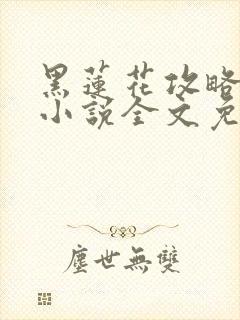 黑蓮花攻略
小說全文免
塵世無雙